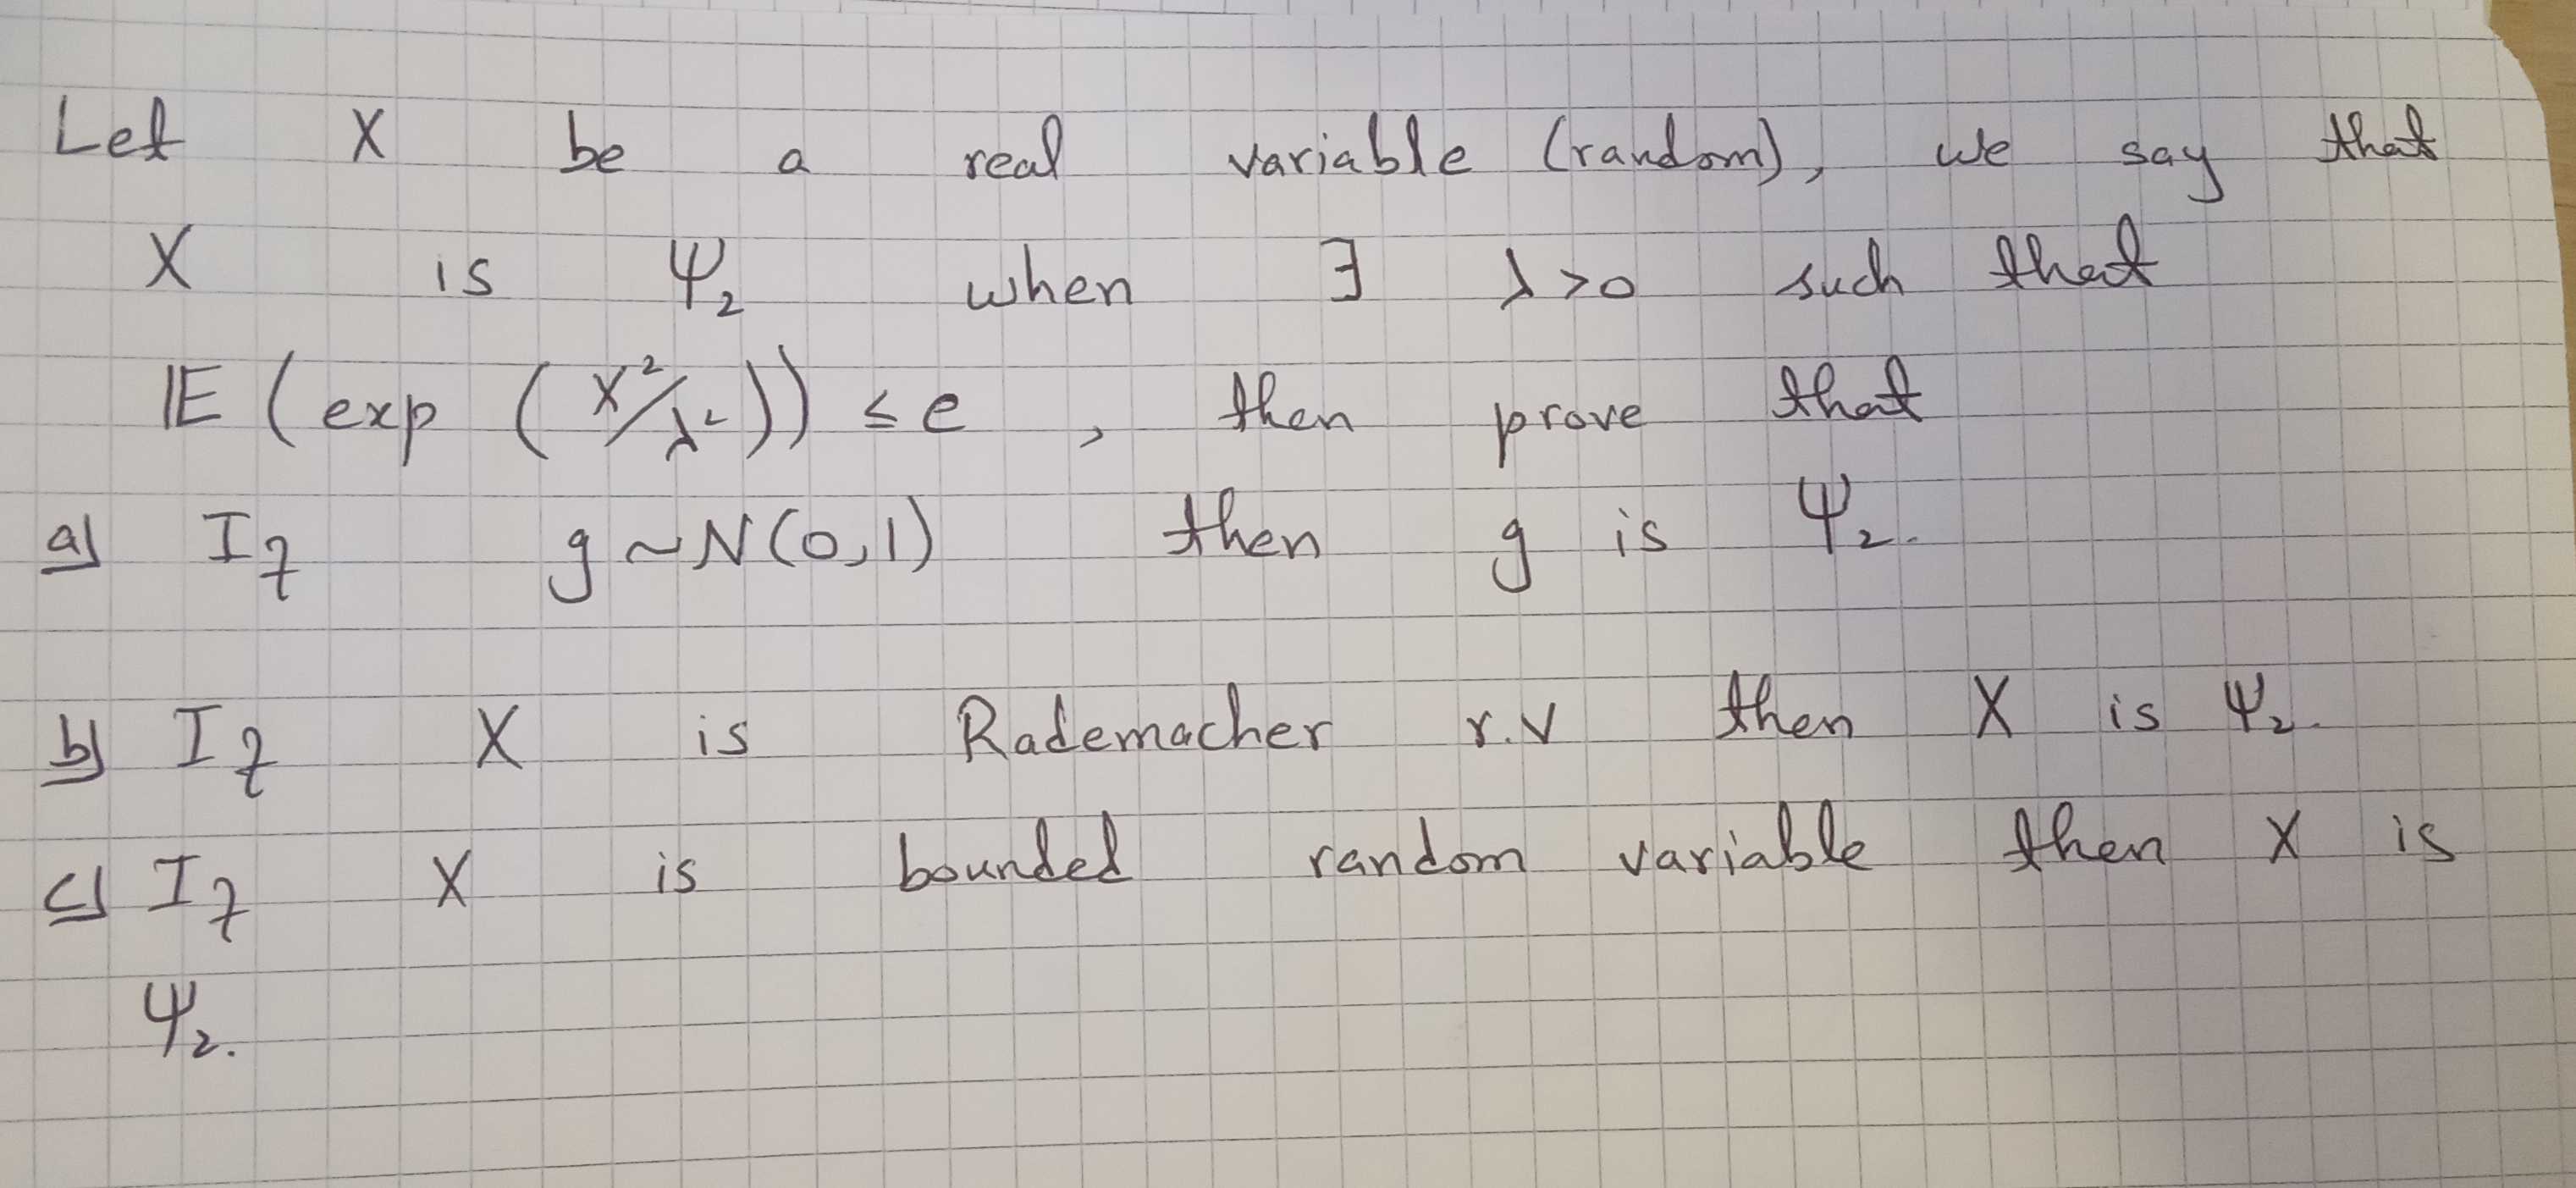 Let X be a real variable (random), we say that
X is Ψ₂ when ∃ λ>0 such that
𝔼(exp(X²/λ²)) ≤ e, then prove that
a) If g ~ N(0,1) then g is Ψ₂.
b) If X is Rademacher r.v then X is Ψ₂.
c) If X is bounded random variable then X is
Ψ₂.